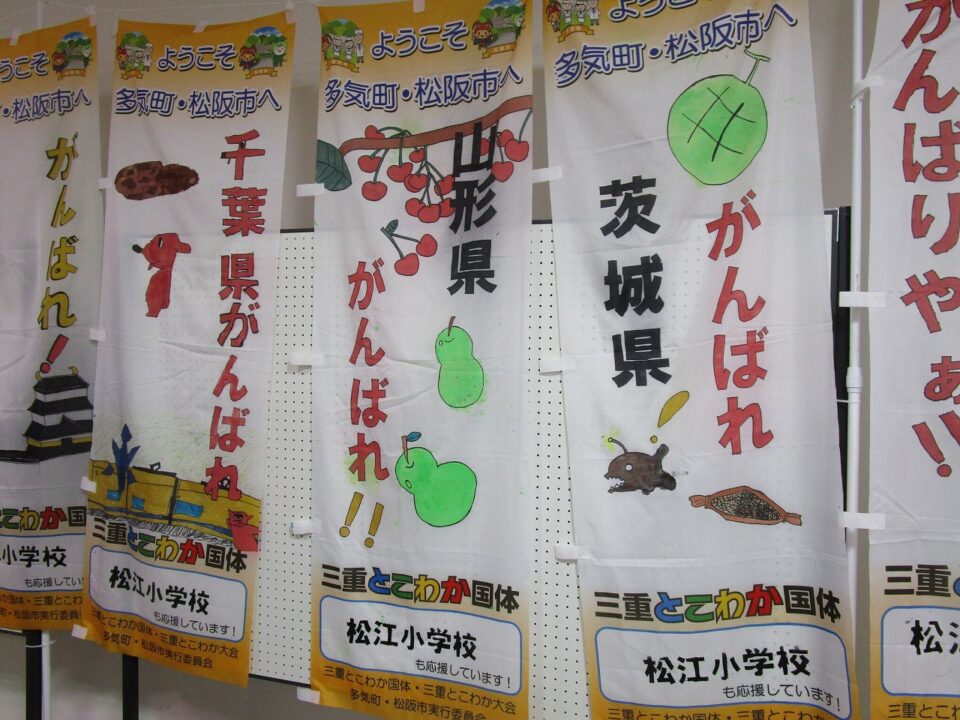 ようこそ
・松阪市へ
がんばれ!
三重とこわか国体
小学校
も応援してい
三重とこわか国体・三重とこわか
町・松阪市実行委員
ようこそ
多気町・松阪市へ
千葉県がんばれ
三重とこわか国体
松江小学校
も応援しています!
三重とこわか国体・三重とこわか大会
多気町・松阪市実行委員会
ようこそ
多気町・松阪市へ
山形県
がんばれ!!
三重とこわか国体
松江小学校
も応援しています!
三重とこわか国体・三重とこわか大会
多気町・松阪市実行委員会
ようこそ
多気町・松阪市へ
がんばれ
茨城県!
三重とこわか国体
松江小学校
も応援しています!
三重とこわか国体・三重とこわか大会
がんばりやぁ!!
三重とこ
松江
三重とこわ